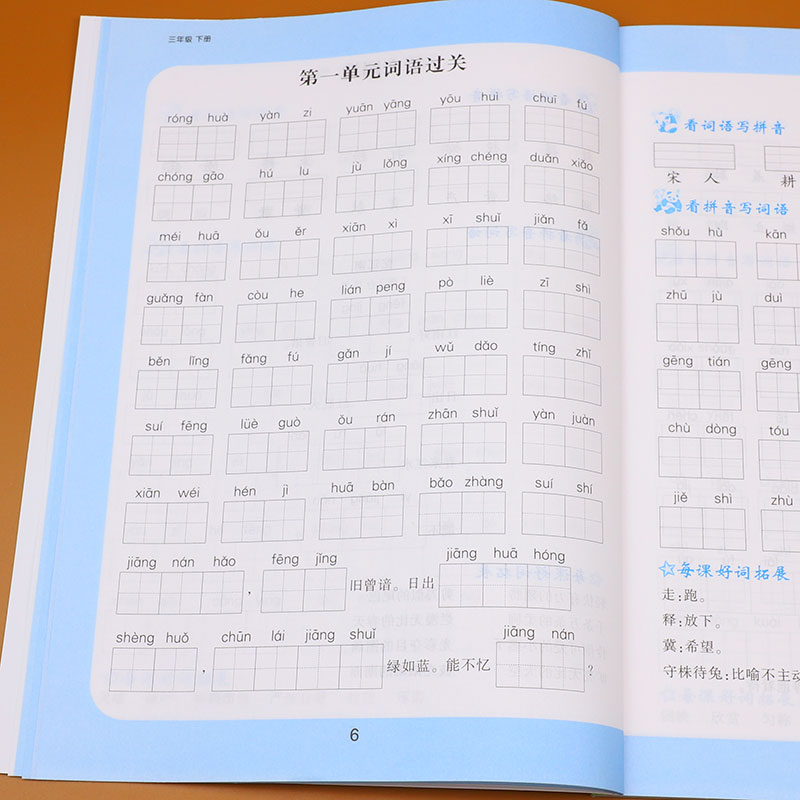 三年级 下册
第一单元词语过关
róng huà yàn zi yuān yāng yōu huì chuī fú
chóng gāo hú lu jù lǒng xíng chéng duǎn xiǎo
méi huā ǒu ěr xiān xì xī shuǐ jiǎn fǎ
guǎng fàn còu he lián peng pò liè zī shì
běn lǐng fǎng fú gǎn jí wǔ dǎo tíng zhǐ
suí fēng lüè guò ǒu rán zhān shuǐ yàn juàn
xiān wéi hén jì huā bàn bǎo zhàng suí shí
jiāng nán hǎo fēng jǐng jiāng huā hóng
， 旧曾谙。日出
shèng huǒ chūn lái jiāng shuǐ jiāng nán
， 绿如蓝。能不忆 ？
6
看词语写拼音
宋 人 耕
看拼音写词语
shǒu hù kān
zhū jù duì
gēng tián gēng
chù dòng tóu
jiě shì zhù
每课好词拓展
走:跑。
释:放下。
冀:希望。
守株待兔:比喻不主动